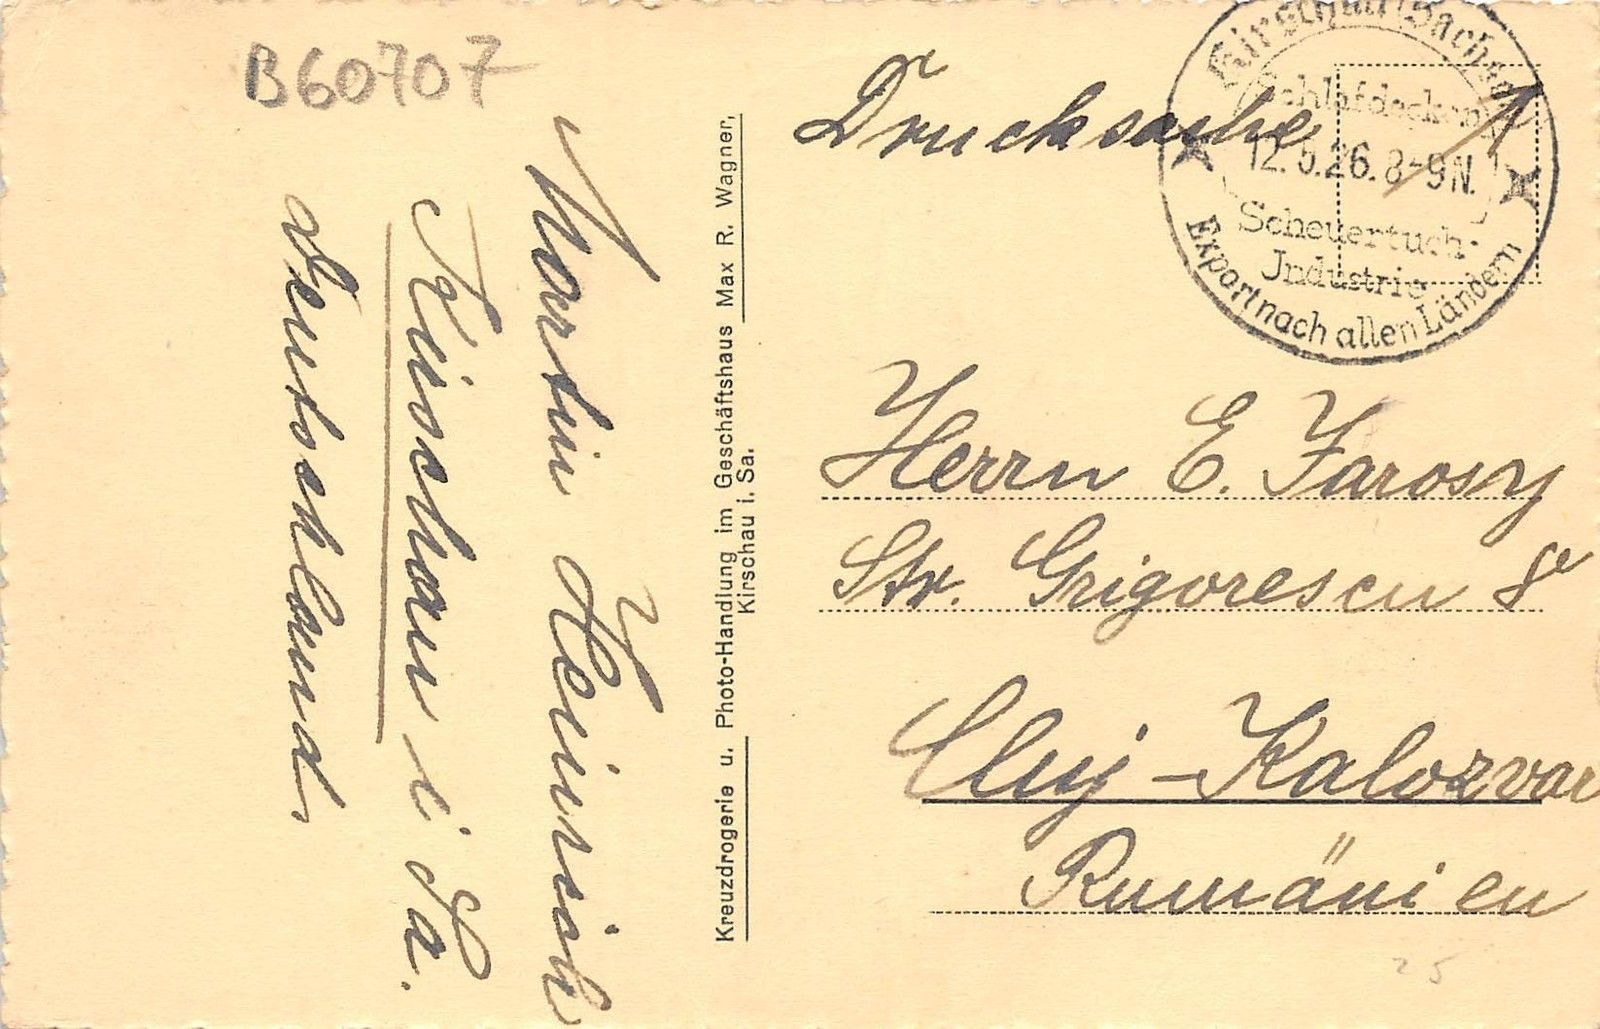 B60707
Martin Heinrich
Kirschau i. Sa.
Deutschland
Kreuzdrogerie u. Photo-Handlung im Geschäftshaus Max R. Wagner,
Kirschau i. Sa.
Drucksache
Kirschau (Sachsen)
Schlafdecken
12.5.26. 8-9N.
Scheuertuch-
Jndustrie
Export nach allen Ländern
Herrn E. Jarosy
Str. Grigorescu 8
Cluj - Kalozvar
Rumänien
25